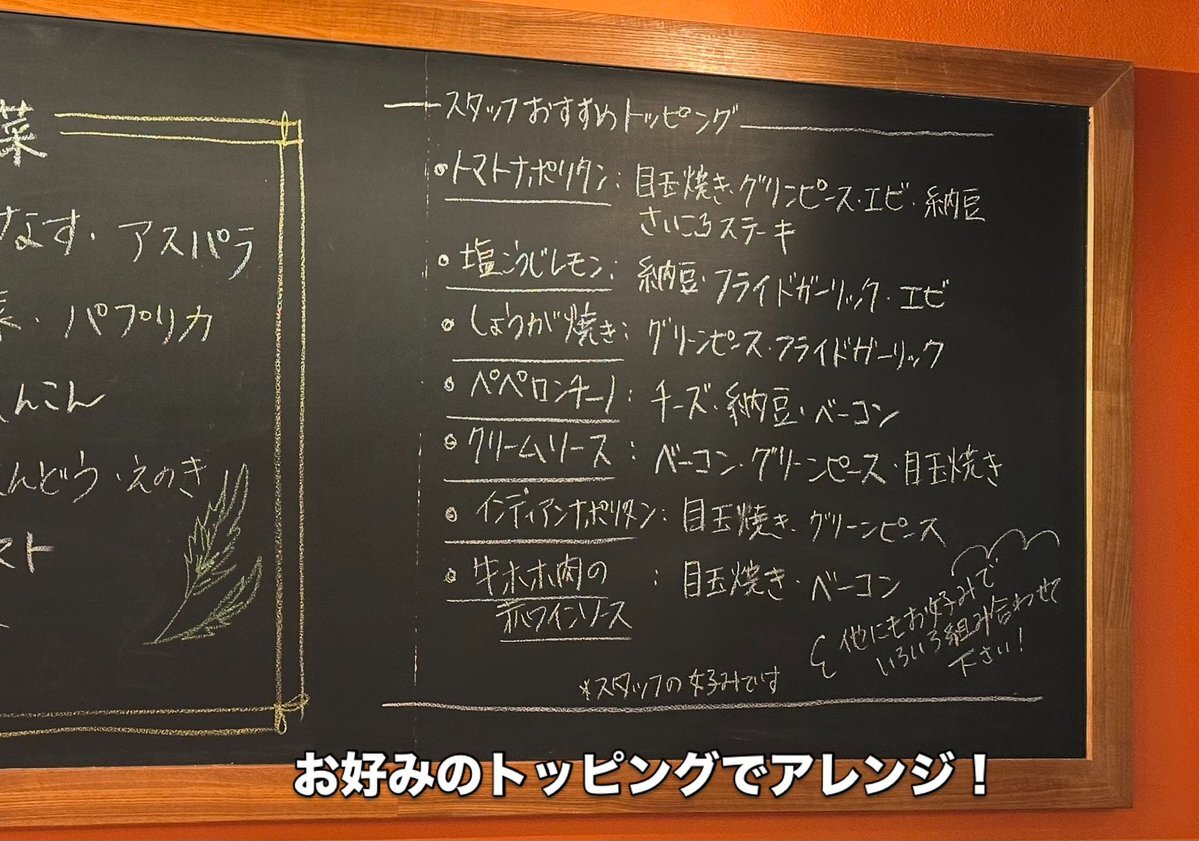 菜
なす・アスパラ
菜・パプリカ
んこん
んどう・えのき
スト
スタッフおすすめトッピング
・トマトナポリタン：目玉焼き・グリンピース・エビ・納豆
さいころステーキ
・塩こうじレモン：納豆・フライドガーリック・エビ
・しょうが焼き：グリーンピース・フライドガーリック
・ペペロンチーノ：チーズ・納豆・ベーコン
・クリームソース：ベーコン・グリーンピース・目玉焼き
・インディアンナポリタン：目玉焼き・グリーンピース
・牛ホホ肉の：目玉焼き・ベーコン
赤ワインソース
他にもお好みで
いろいろ組み合わせて
下さい！
*スタッフの好みです
お好みのトッピングでアレンジ！